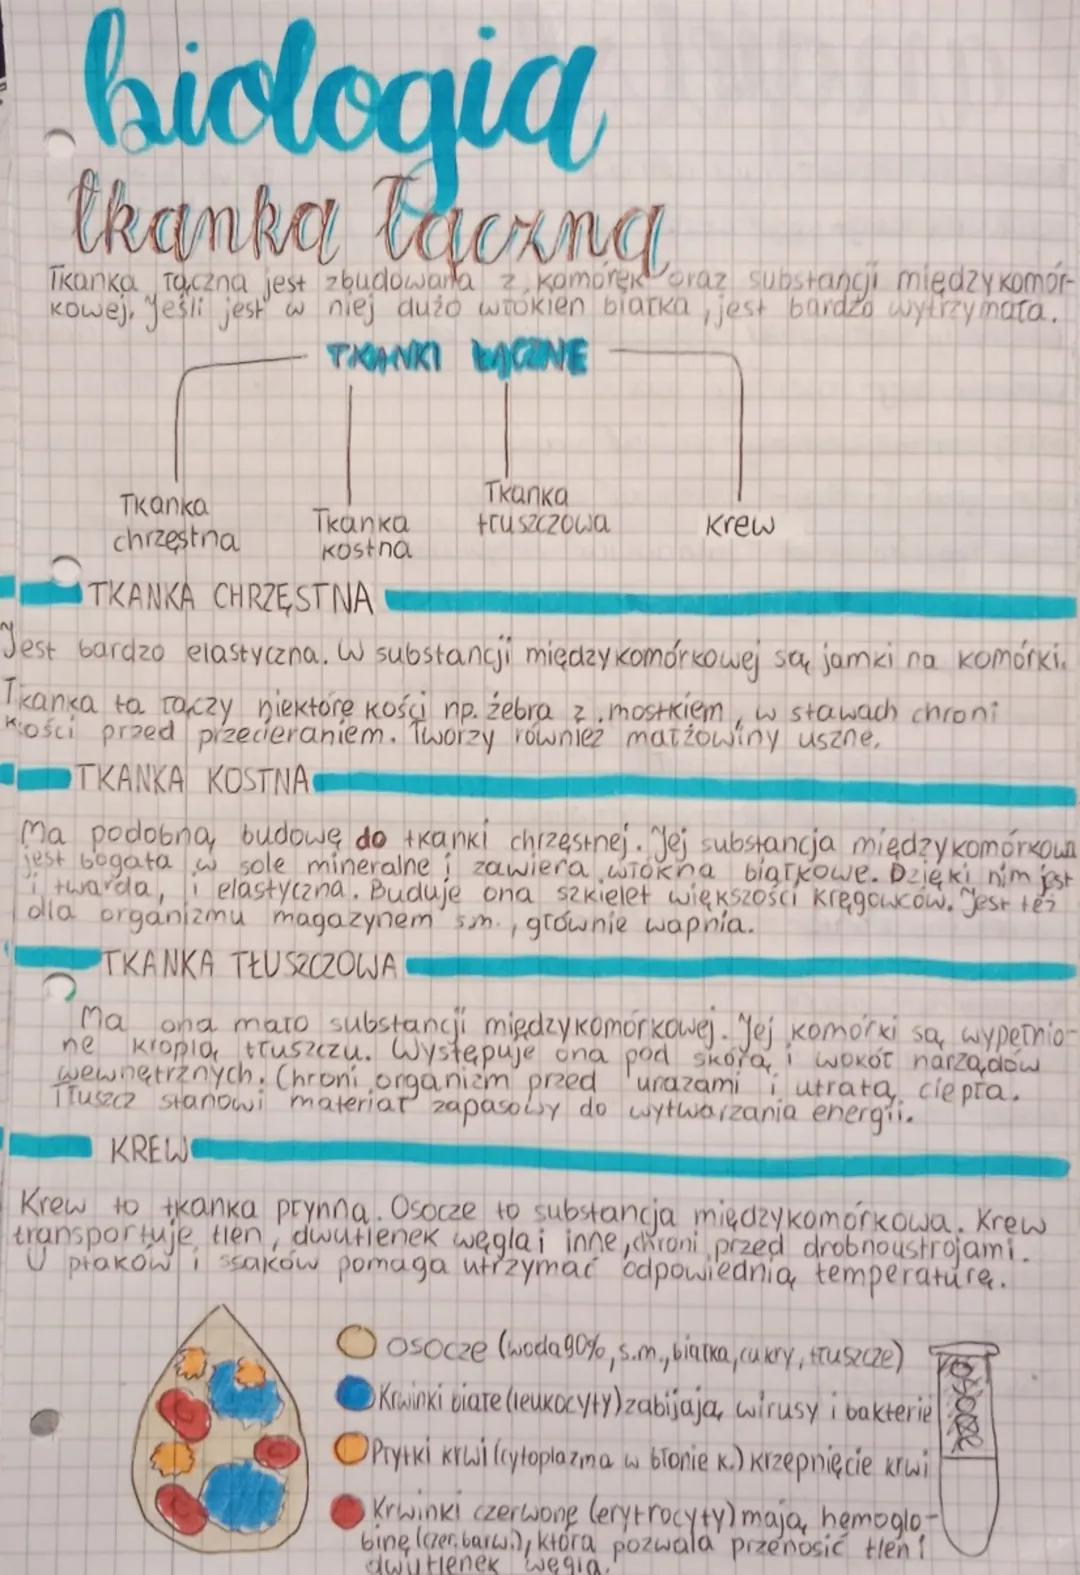 biologia
tkanka łączna
Tkanka łączna jest zbudowana z komórek oraz substancji międzykomór-
kowej. Jeśli jest w niej dużo włókien białka, jest bardzo wytrzymała.
TKANKI ŁĄCZNE
Tkanka chrzęstna
Tkanka kostna
Tkanka tłuszczowa
Krew
TKANKA CHRZĘSTNA
Jest bardzo elastyczna. W substancji międzykomórkowej są jamki na komórki.
Tkanka ta łączy niektóre kości np. żebra z mostkiem, w stawach chroni
kości przed przecieraniem. Tworzy również małżowiny uszne.
TKANKA KOSTNA
Ma podobną budowę do tkanki chrzęstnej. Jej substancja międzykomórkowa
jest bogata w sole mineralne i zawiera włókna białkowe. Dzięki nim jest
i twarda, i elastyczna. Buduje ona szkielet większości kręgowców. Jest też
dla organizmu magazynem s.m., głównie wapnia.
TKANKA TŁUSZCZOWA
Ma ona mało substancji międzykomórkowej. Jej komórki są wypełnio-
ne kroplą tłuszczu. Występuje ona pod skórą i wokół narządów
wewnętrznych. Chroni organizm przed urazami i utratą ciepła.
Tłuszcz stanowi materiał zapasowy do wytwarzania energii.
KREW
Krew to tkanka płynna. Osocze to substancja międzykomórkowa. Krew
transportuje tlen, dwutlenek węgla i inne, chroni przed drobnoustrojami.
U ptaków i ssaków pomaga utrzymać odpowiednią temperaturę.
osocze (woda 90%, s.m., białka, cukry, tłuszcze)
Krwinki białe (leukocyty) zabijają wirusy i bakterie
Płytki krwi (cytoplazma w błonie k.) krzepnięcie krwi
Krwinki czerwone (erytrocyty) mają hemoglo-
binę (czer. barw.), która pozwala przenosić tlen i
dwutlenek węgla.